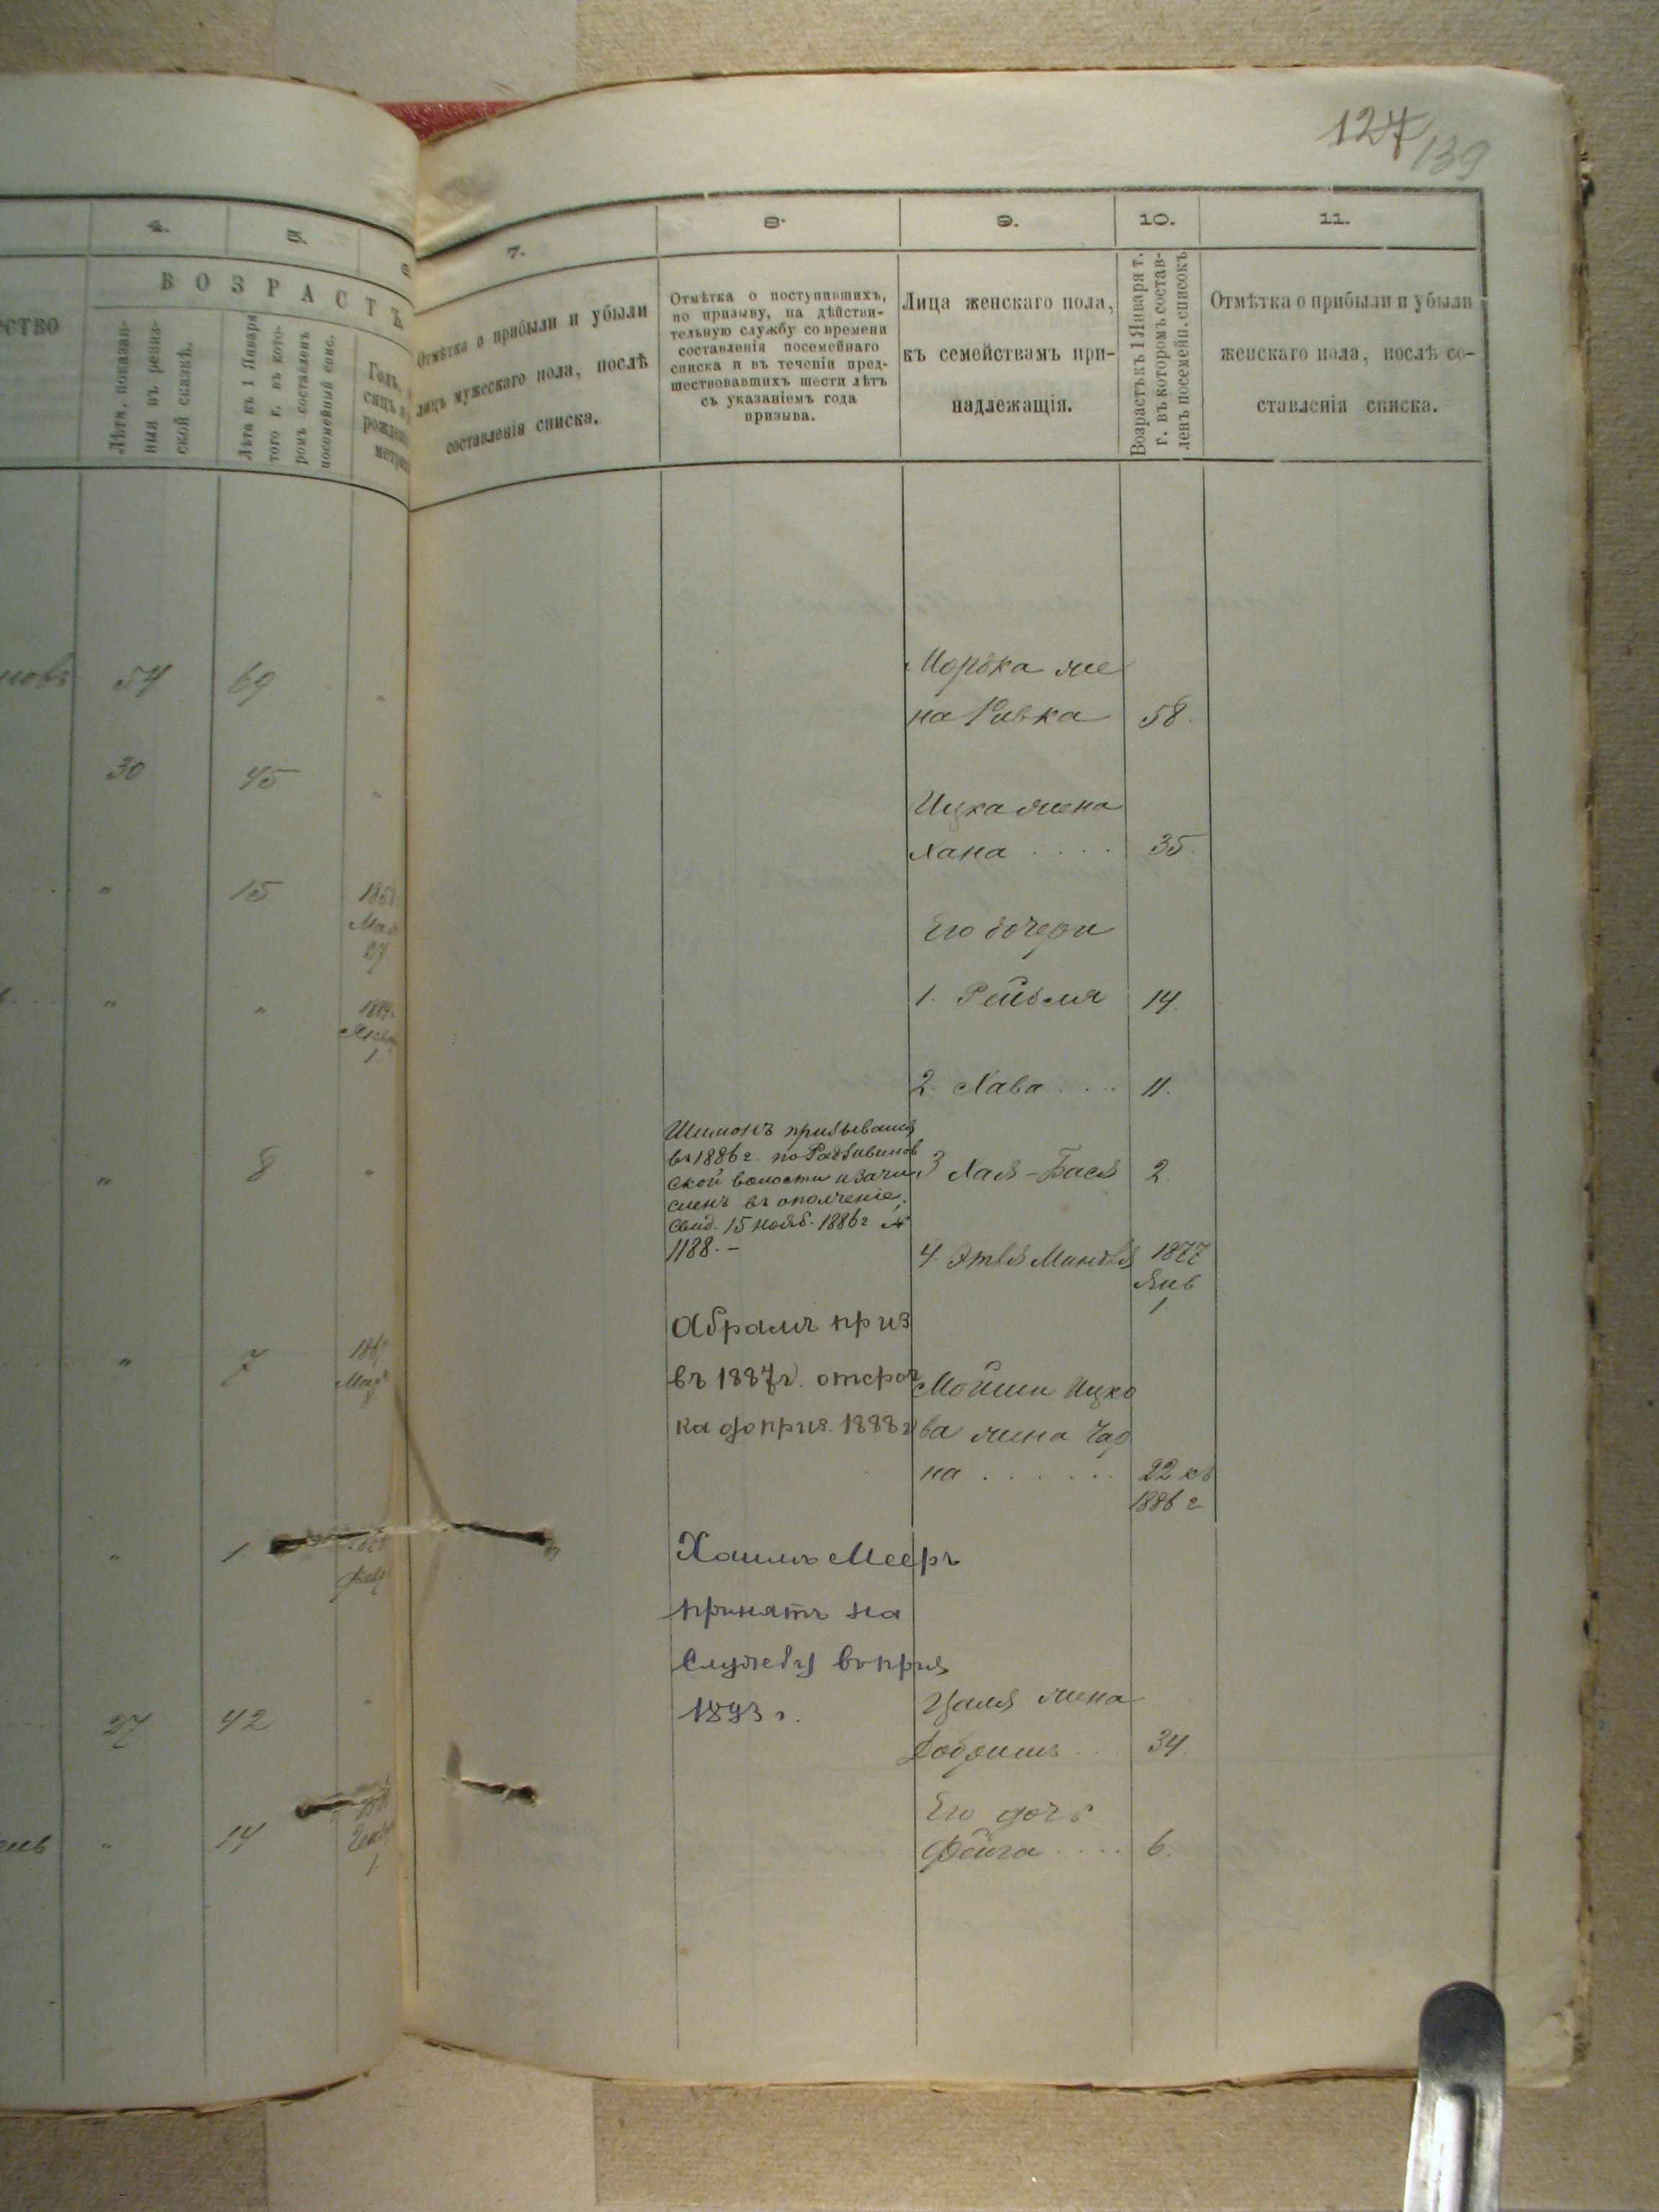 127
139
4.
5.
6
ВОЗРАСТЪ
Лѣта, показан-
ныя въ ревиз-
ской сказкѣ.
Лѣта къ 1 Января
того г. въ кото-
ромъ составленъ
посемейный спис.
Годъ,
сицъ
рожден
метри
54
69
30
45
"
15
Мая
27
"
"
1
"
8
"
"
7
"
1
27
42
"
14
1
7.
Отмѣтка о прибыли и убыли
лицъ мужескаго пола, послѣ
составленія списка.
8.
Отмѣтка о поступившихъ,
по призыву, на дѣйстви-
тельную службу со времени
составленія посемейнаго
списка и въ теченіи пред-
шествовавшихъ шести лѣтъ
съ указаніемъ года
призыва.
Шимонъ призывался
въ 1886 г. по Радзивилов
ской волости и зачи
сленъ въ ополченіе,
свид. 15 нояб. 1886 г. №
1188. –
Абрамъ приз
въ 1887 г. отсроч
ка до приз. 1888 г
Хаимъ Мееръ
принятъ на
Службу въ приз
1893 г.
9.
Лица женскаго пола,
къ семействамъ при-
надлежащія.
10.
Возрастъ къ 1 Января т.
г. въ которомъ состав-
ленъ посемейн. списокъ
Мордка же
на Ривка 58.
Ицка жена
Хана .... 35.
Его дочери
1. Рейзля 14.
2. Хава .... 11.
3 Хая-Бася 2.
4. Этля Миндля 1877
Янв
1.
Мошки Ицко
ва жена Чар
на ...... 22 къ
1886 г
Цаля жена
Добришъ ... 34.
Его дочь
Фейга .... 6.
11.
Отмѣтка о прибыли и убыли
женскаго пола, послѣ со-
ставленія списка.